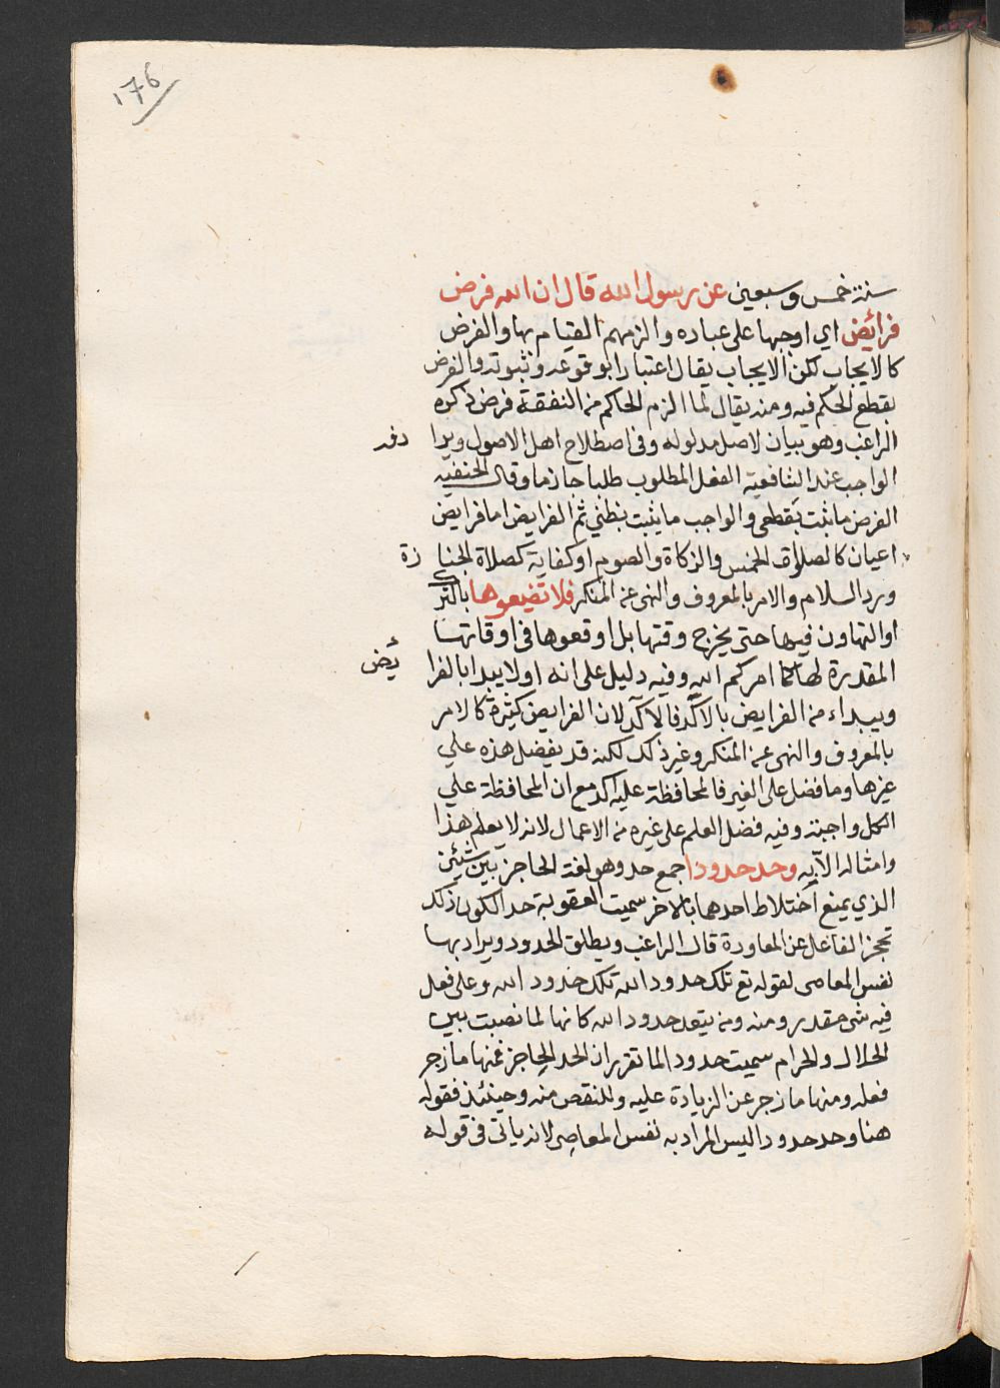 176
سنة خمس وسبعين عن رسول الله قال ان الله فرض
فرائض اي اوجبها على عباده والزمهم القيام بها والفرض
كالايجاب لكن الايجاب يقال اعتبارا بوقوعه وثبوته والفرض
بقطع الحكم فيه ومنه يقال لما الزم الحاكم من النفقة فرض ذكره
الراغب وهو بيان لاصل مدلوله وفي اصطلاح اهل الاصول ويرا دفه
الواجب عند الشافعية الفعل المطلوب طلبا جازما وقال الحنفيه
الفرض ما ثبت بقطعي والواجب ما يثبت بظني ثم الفرايض اما فرايض
اعيان كالصلوات الخمس والزكاة والصوم او كفاية كصلاة الجنا زة
ورد السلام والامر بالمعروف والنهى عن المنكر فلا تضيعوها بالترك
او التهاون فيها حتى يخرج وقتها بل اوقعوها فى اوقاتها
المقدرة لها كما امركم الله وفيه دليل على انه اولا يبدا بالفرا ئض
ويبداء من الفرايض بالاكد فالاكد لان الفرايض كثيرة كالامر
بالمعروف والنهى عن المنكر وغير ذلك لكنه قد يفضل هذه علي
غيرها وما فضل على الغير فالمحافظة عليه اكد مع ان المحافظة علي
الكل واجبة وفيه فضل العلم على غيره من الاعمال لانه لا يعلم هذا
وامثاله الا به وحد حدودا جمع حد وهو لغة الحاجز بين شيئين
الذي يمنع اختلاط احدهما بالاخر سميت العقوبة حد الكون ذلك
تحجز الفاعل عن المعاودة قال الراغب ويطلق الحدود ويراد بها
نفس المعاصى لقوله تع تلك حدود الله تلك حدود الله وعلى فعل
فيه شى مقدر ومنه ومن يتعد حدود الله كانها لما نصبت بين
الحلال والحرام سميت حدود الما تقرر ان الحد الحاجز فمنها ما زجر
فعله ومنها ما زجر عن الزيادة عليه والنقص منه وحينئذ فقوله
هنا وحد حدودا ليس المراد به نفس المعاصى لانه ياتى فى قوله